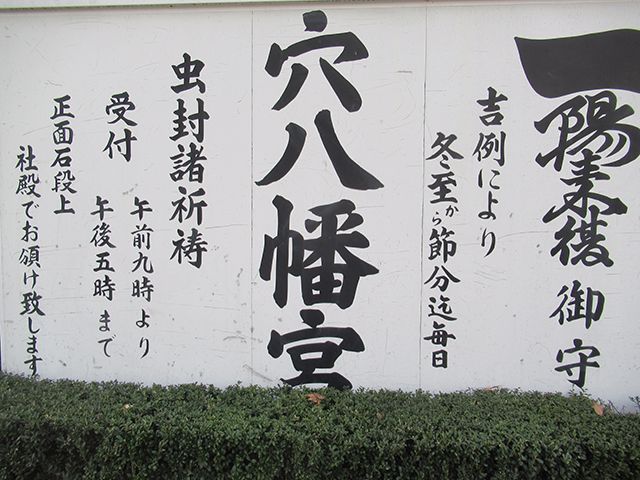 一陽来復御守
吉例により
冬至から節分迄毎日
穴八幡宮
虫封諸祈祷
受付
午前九時より
午後五時まで
正面石段上
社殿でお頒け致します